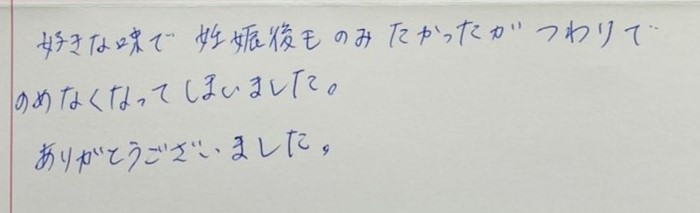 好きな味で 妊娠後ものみたかったが つわりで
のめなくなってしまいました。
ありがとうございました。